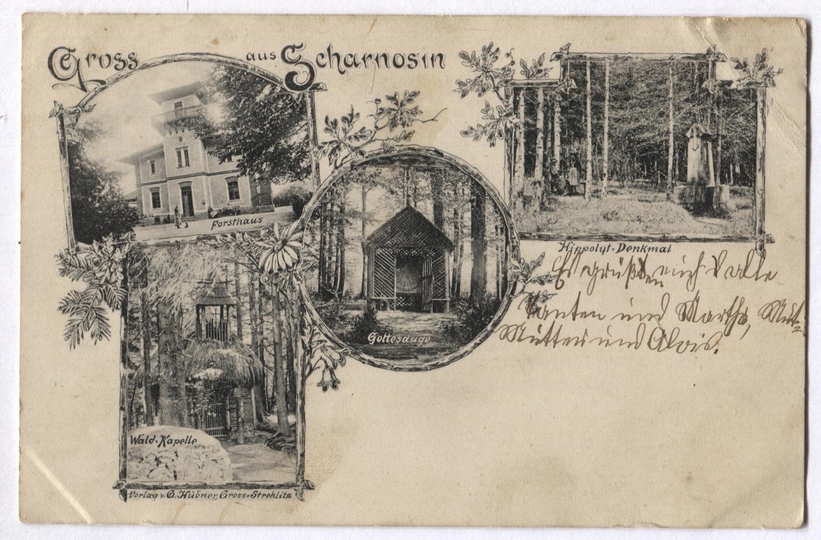 Gross aus Scharnosin
Forsthaus
Hippolyt-Denkmal
Es grüßen euch alle
Tanten und Martha,
Mutter und Alois.
Gottesauge
Wald-Kapelle
Verlag v. G. Hübner, Gross-Strehlitz